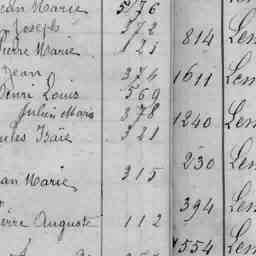 ean Marie 5/76
Joseph 372
Pierre Marie 121 814 Len
Jean 374 1611 Len
Henri Louis 569
Julien Marie 378 1240 Len
ules Isaïe 321
230 Len
an Marie 315
394 Len
erre Auguste 112
554 Len